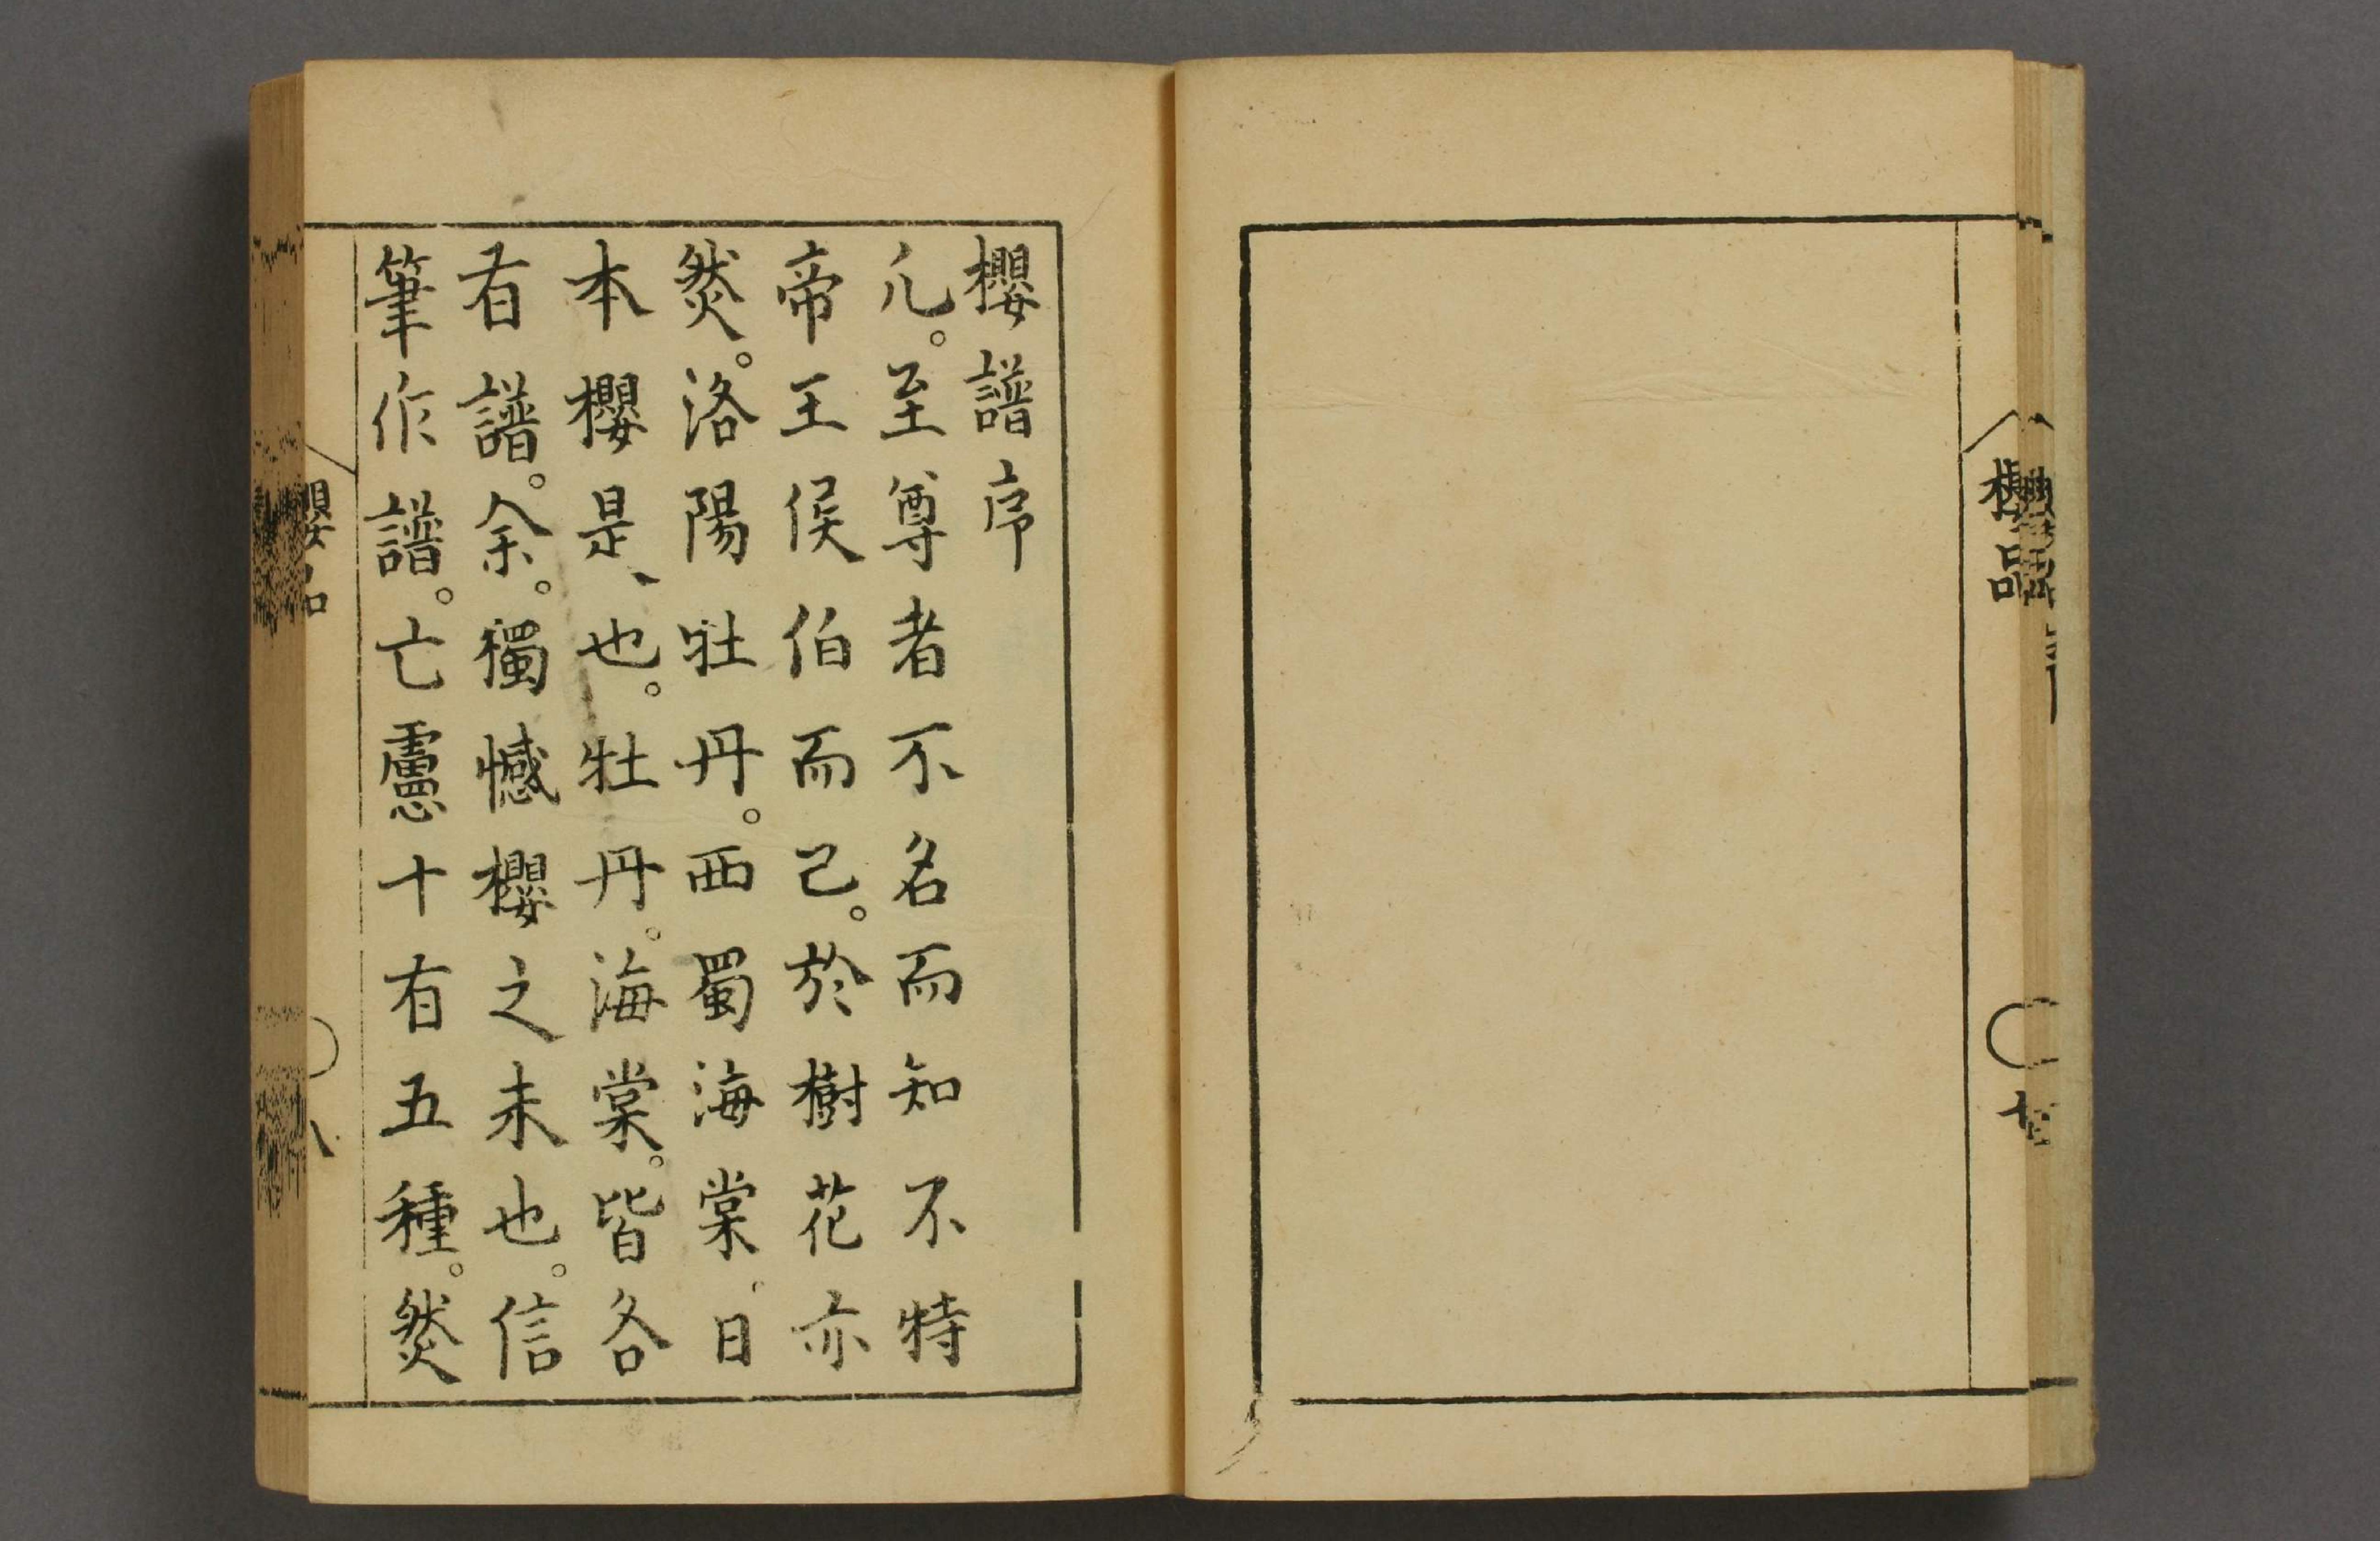 櫻品
櫻譜序
凢。至尊者不名而知不特
帝王侯伯而已。於樹花亦
然。洛陽牡丹。西蜀海棠。日
本櫻是、也。牡丹。海棠。皆各
有譜。余。獨憾櫻之未也。信
筆作譜。亡慮十有五種。然